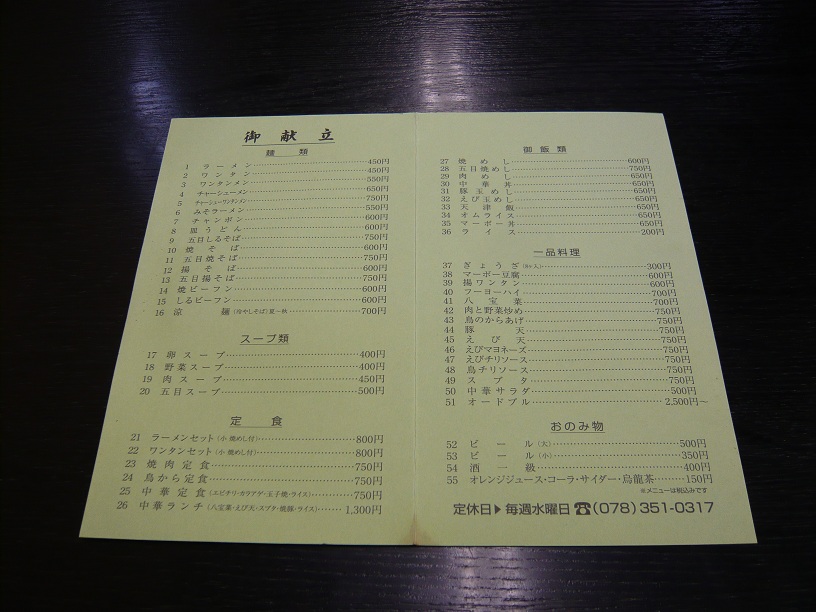 御献立
麺類
1 ラーメン 450円
2 ワンタン 450円
3 ワンタンメン 550円
4 チャーシューメン 650円
5 チャーシューワンタンメン 750円
6 みそラーメン 550円
7 チャンポン 600円
8 皿うどん 600円
9 五目しるそば 750円
10 焼そば 600円
11 五目焼そば 750円
12 揚そば 600円
13 五目揚そば 750円
14 焼ビーフン 600円
15 しるビーフン 600円
16 涼麺(冷やしそば)夏~秋 700円
スープ類
17 卵スープ 400円
18 野菜スープ 400円
19 肉スープ 450円
20 五目スープ 500円
定食
21 ラーメンセット(小 焼めし付) 800円
22 ワンタンセット(小 焼めし付) 800円
23 焼肉定食 750円
24 鳥から定食 750円
25 中華定食(エビチリ・カラアゲ・玉子焼・ライス) 750円
26 中華ランチ(八宝菜・えび天・スブタ・焼豚・ライス) 1,300円
御飯類
27 焼めし 600円
28 五目焼めし 750円
29 肉めし 650円
30 中華丼 650円
31 豚玉めし 650円
32 えび玉めし 650円
33 天津飯 650円
34 オムライス 650円
35 マーボー丼 650円
36 ライス 200円
一品料理
37 ぎょうざ 300円
38 マーボー豆腐 600円
39 揚ワンタン 600円
40 フーヨーハイ 700円
41 八宝菜 700円
42 肉と野菜炒め 750円
43 鳥のからあげ 750円
44 豚天 750円
45 えび天 750円
46 えびマヨネーズ 750円
47 えびチリソース 750円
48 鳥チリソース 750円
49 スブタ 750円
50 中華サラダ 500円
51 オードブル 2,500円~
おのみ物
52 ビール(大) 500円
53 ビール(小) 350円
54 酒一級 400円
55 オレンジジュース・コーラ・サイダー・烏龍茶 150円
※メニューは税込みです
定休日▶毎週水曜日☎(078)351-0317